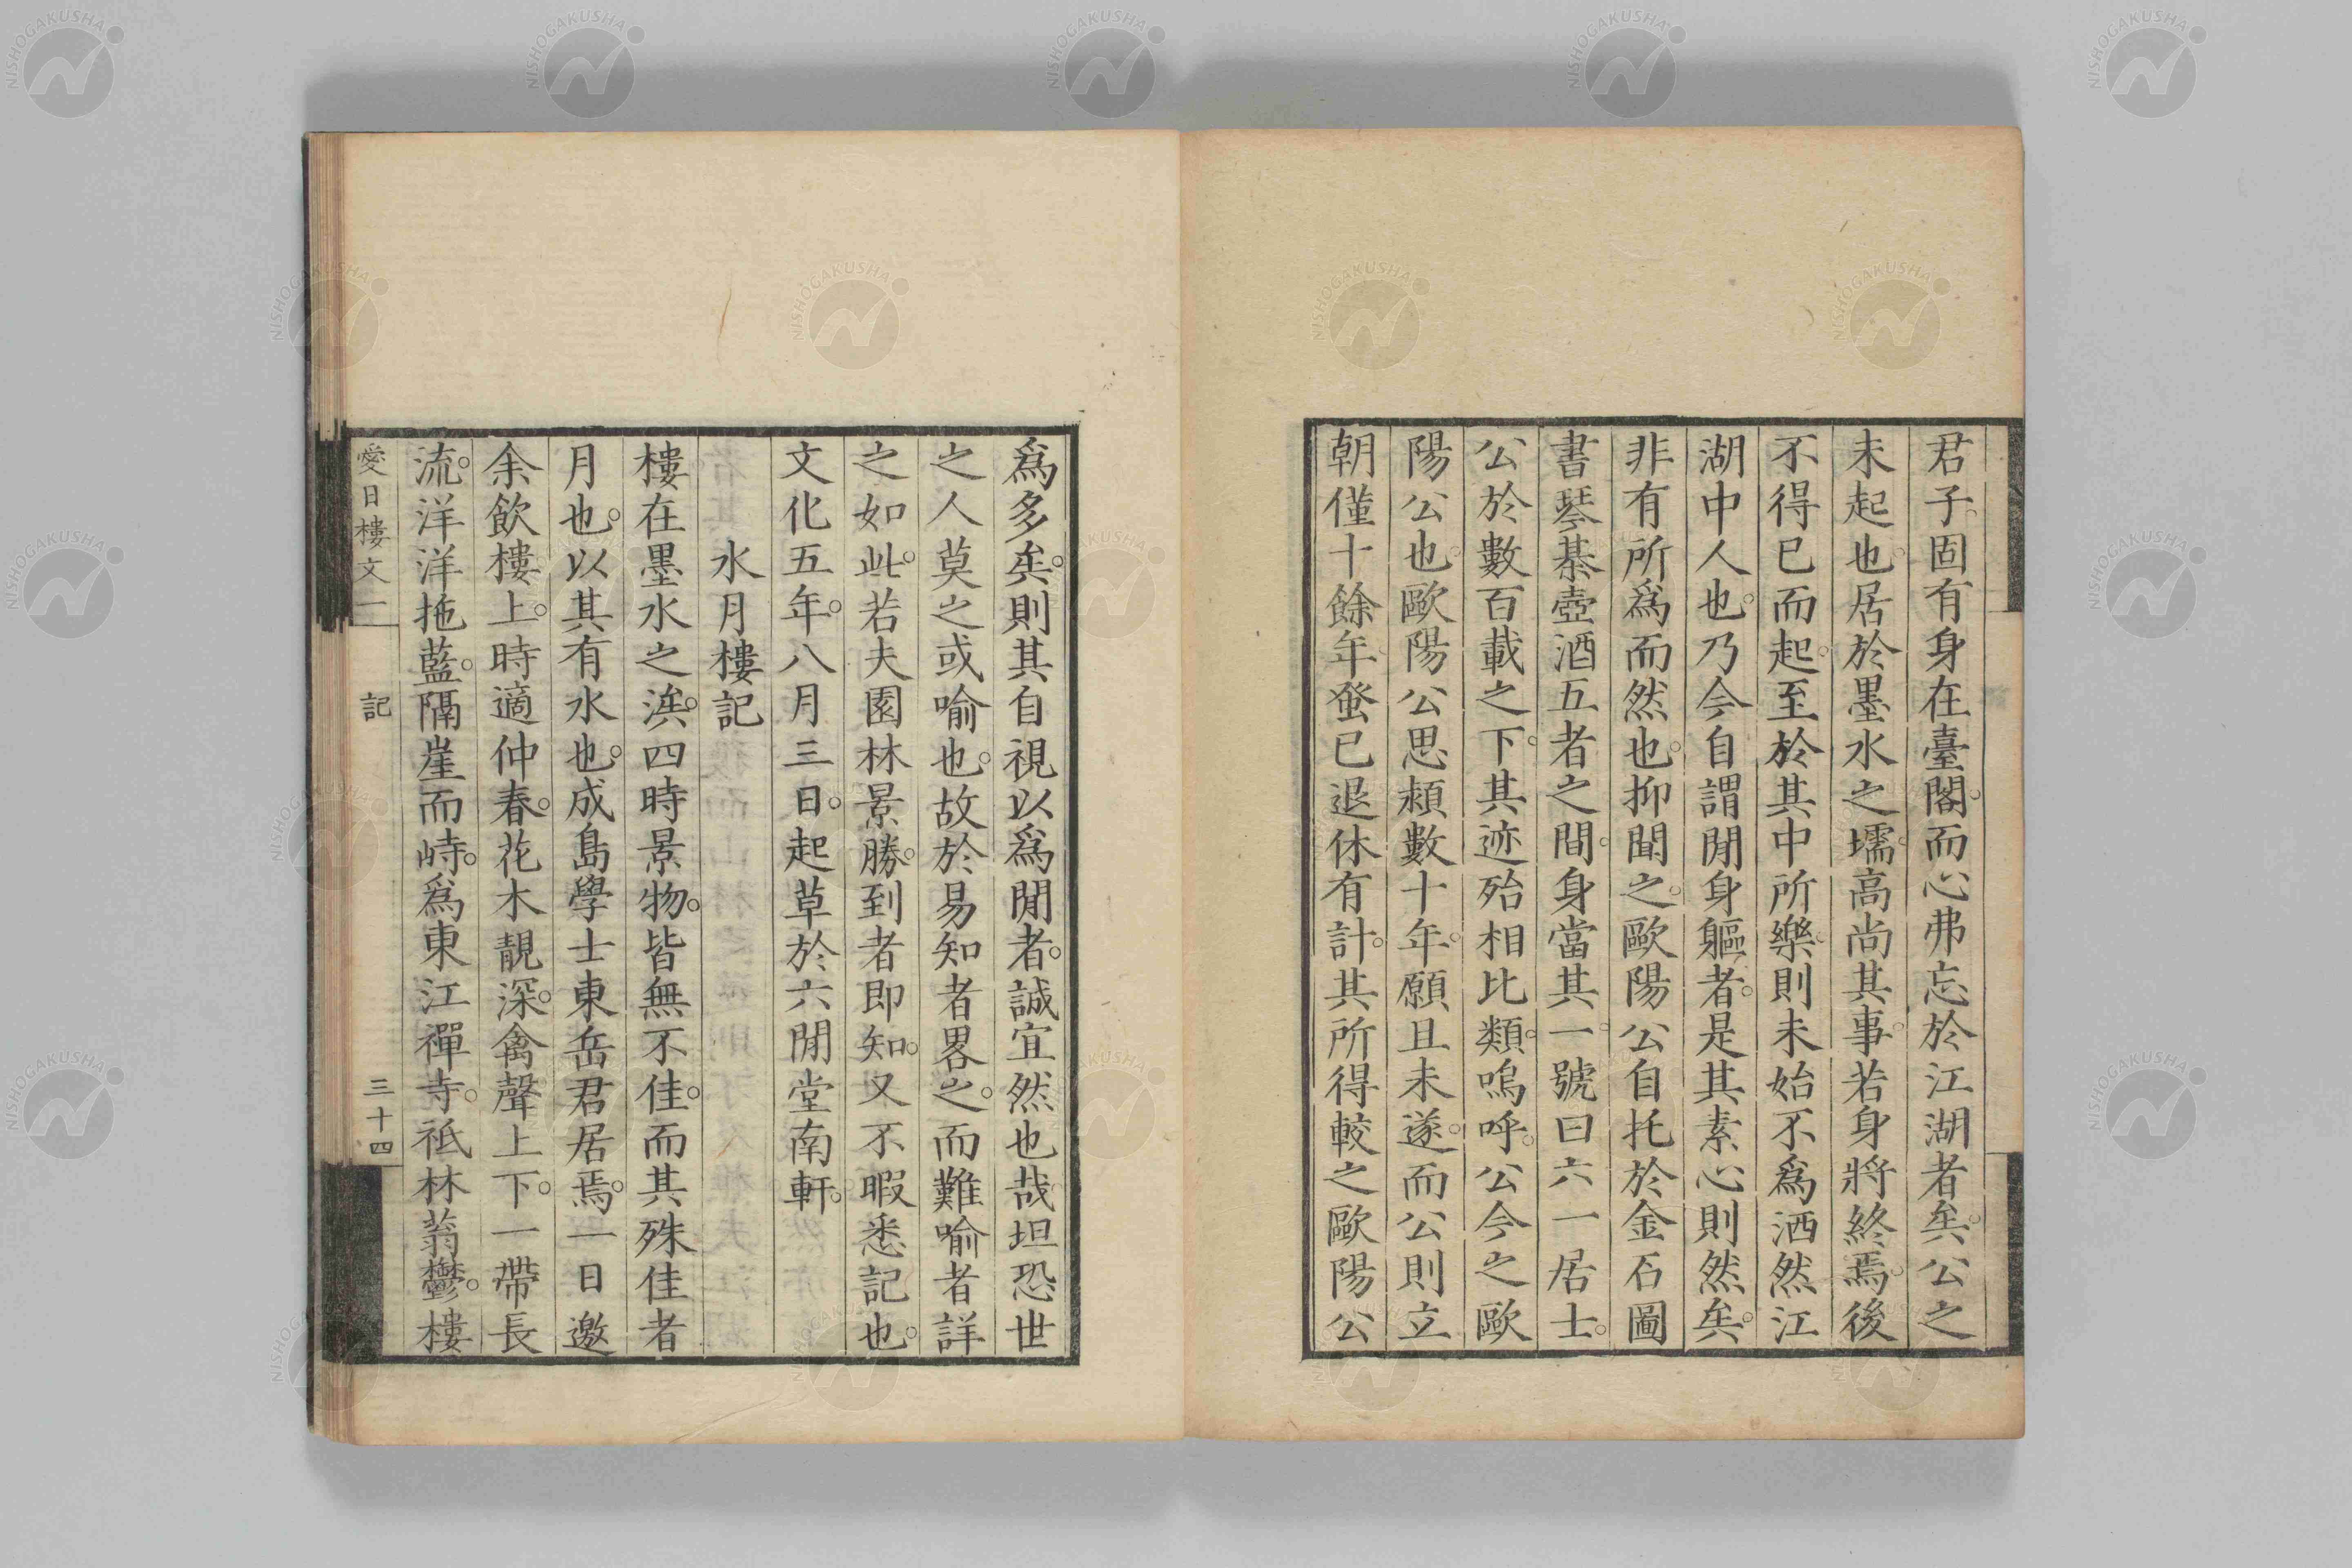 君子。固有身在臺閣。而心弗忘於江湖者矣。公之
未起也。居於墨水之壖。高尚其事。若身將終焉。後
不得已而起。至於其中所樂。則未始不爲洒然江
湖中人也。乃今自謂閒身軀者。是其素心則然矣。
非有所爲而然也。抑聞之。歐陽公自托於金石圖
書琴棊壺酒五者之間。身當其一。號曰六一居士。
公於數百載之下。其迹殆相比類。嗚呼。公今之歐
陽公也。歐陽公思潁數十年。願且未遂。而公則立
朝僅十餘年。蚤已退休有計。其所得較之歐陽公
爲多矣。則其自視以爲閒者。誠宜然也哉。坦恐世
之人莫之或喻也。故於易知者畧之。而難喻者詳
之如此。若夫園林景勝。到者即知。又不暇悉記也。
文化五年。八月三日。起草於六閒堂南軒。
水月樓記
樓在墨水之濱。四時景物。皆無不佳。而其殊佳者
月也。以其有水也。成島學士東岳君居焉。一日邀
余飲樓上。時適仲春。花木靚深。禽聲上下。一帶長
流。洋洋拖藍。隔崖而峙。爲東江禪寺。祗林蓊鬱。樓
愛日樓文一 記 三十四
NISHOGAKUSHA